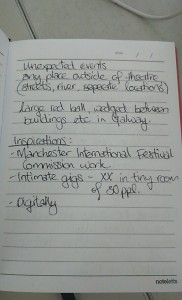 Unexpected events
any place outside of theatre
(streets, river, separate locations)
Large red ball, wedged between
buildings etc in Galway.
Inspirations:
- Manchester International Festival
Commission work.
- Intimate gigs - XX in tiny room
of 30 ppl.
- Digitally